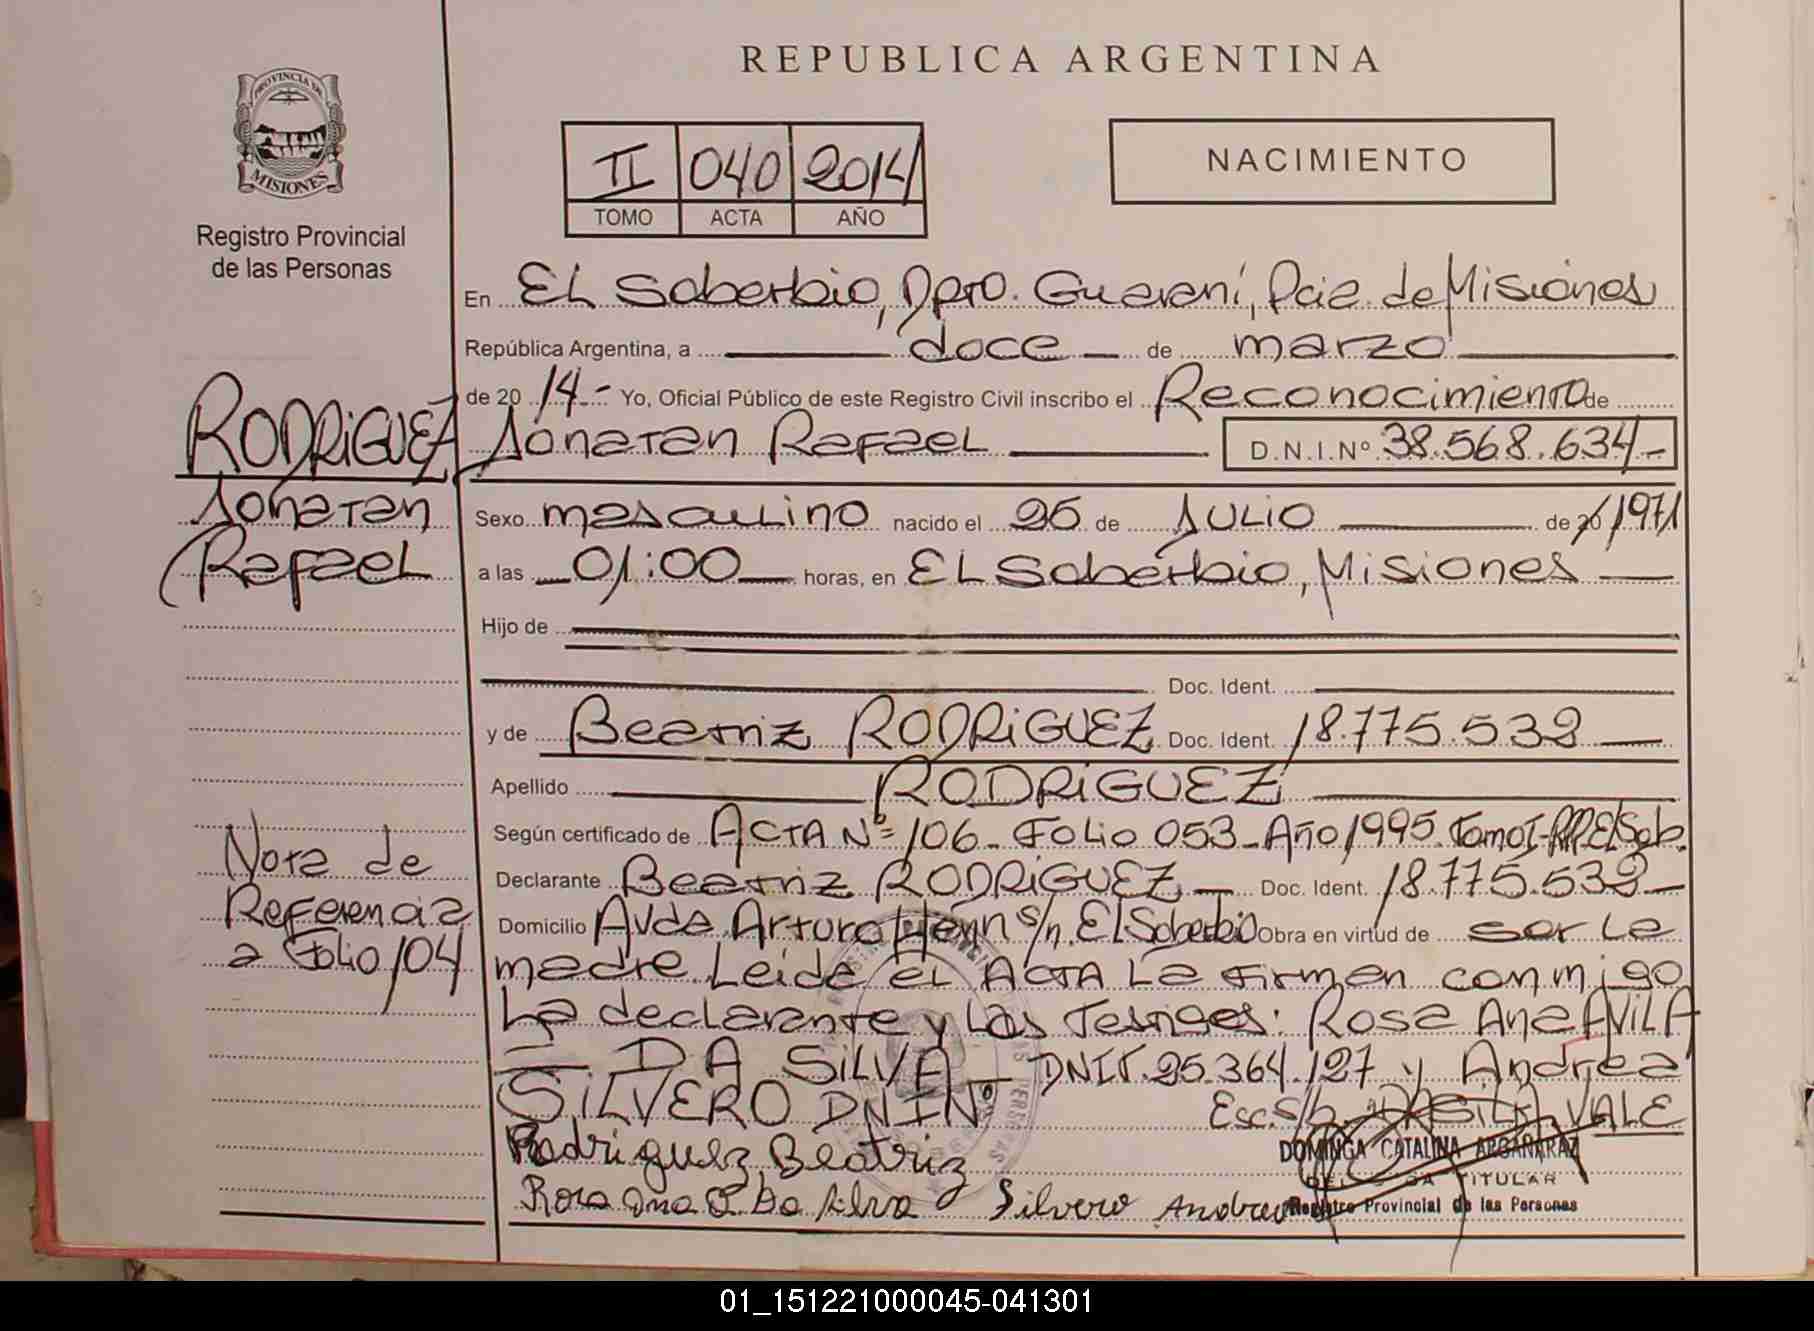 REPUBLICA ARGENTINA
PROVINCIA DE
MISIONES
Registro Provincial
de las Personas
II 040 2014
TOMO ACTA AÑO
NACIMIENTO
En EL Soberbio, Dpto. Guaraní, Pcia. de Misiones
República Argentina, a doce de marzo
de 20 14.- Yo, Oficial Público de este Registro Civil inscribo el Reconocimiento de
RODRIGUEZ, Jonatan Rafael D.N.I.Nº 38.568.634-
Jonatan
Rafael
Sexo masculino nacido el de JULIO de 20/1971
a las 01:00 horas, en EL Soberbio, Misiones
Hijo de
Doc. Ident.
y de Beatriz RODRIGUEZ Doc. Ident. 18.775.532
Apellido RODRIGUEZ
Según certificado de ACTA Nº 106- Folio 053-Año 1995. Tomo I-
Declarante Beatriz RODRIGUEZ Doc. Ident. 18.775.532-
Domicilio Avda. Arturo Henn s/n. El Soberbio Obra en virtud de ser la
madre. Leida el ACTA La firman conmigo
La declarante y Las Testigos: Rosa Ana AVILA
DA SILVA DNI 95.364.127 y Andrea
SILVERO DNI Nº
Esc. s/b. DA SILVA VALE
Nota de
Referencia
a Folio 104
Rodriguez Beatriz
Rosa Ana Da Silva Silvero Andrea
DOMINGA CATALINA ARGAÑARAZ
DELEGADA TITULAR
Registro Provincial de las Personas
01_151221000045-041301